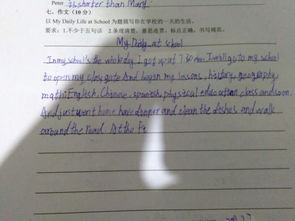 Peter is shorter than Mary.
七、作文(10分)
以 My Daily Life at School 为题描写你在学校的一天的生活。
要求:1.不少于五句话 2.条理清楚,意思连贯,标点正确,书写规范。
My Daily at school
In my school's the I got up at 7 to my school
to open my class gate And began my lessons, history, geography
math English, Chinese, spanish, physical education class and soon.
And just went home have dinner and clean the dishes and walk
around the road. At the